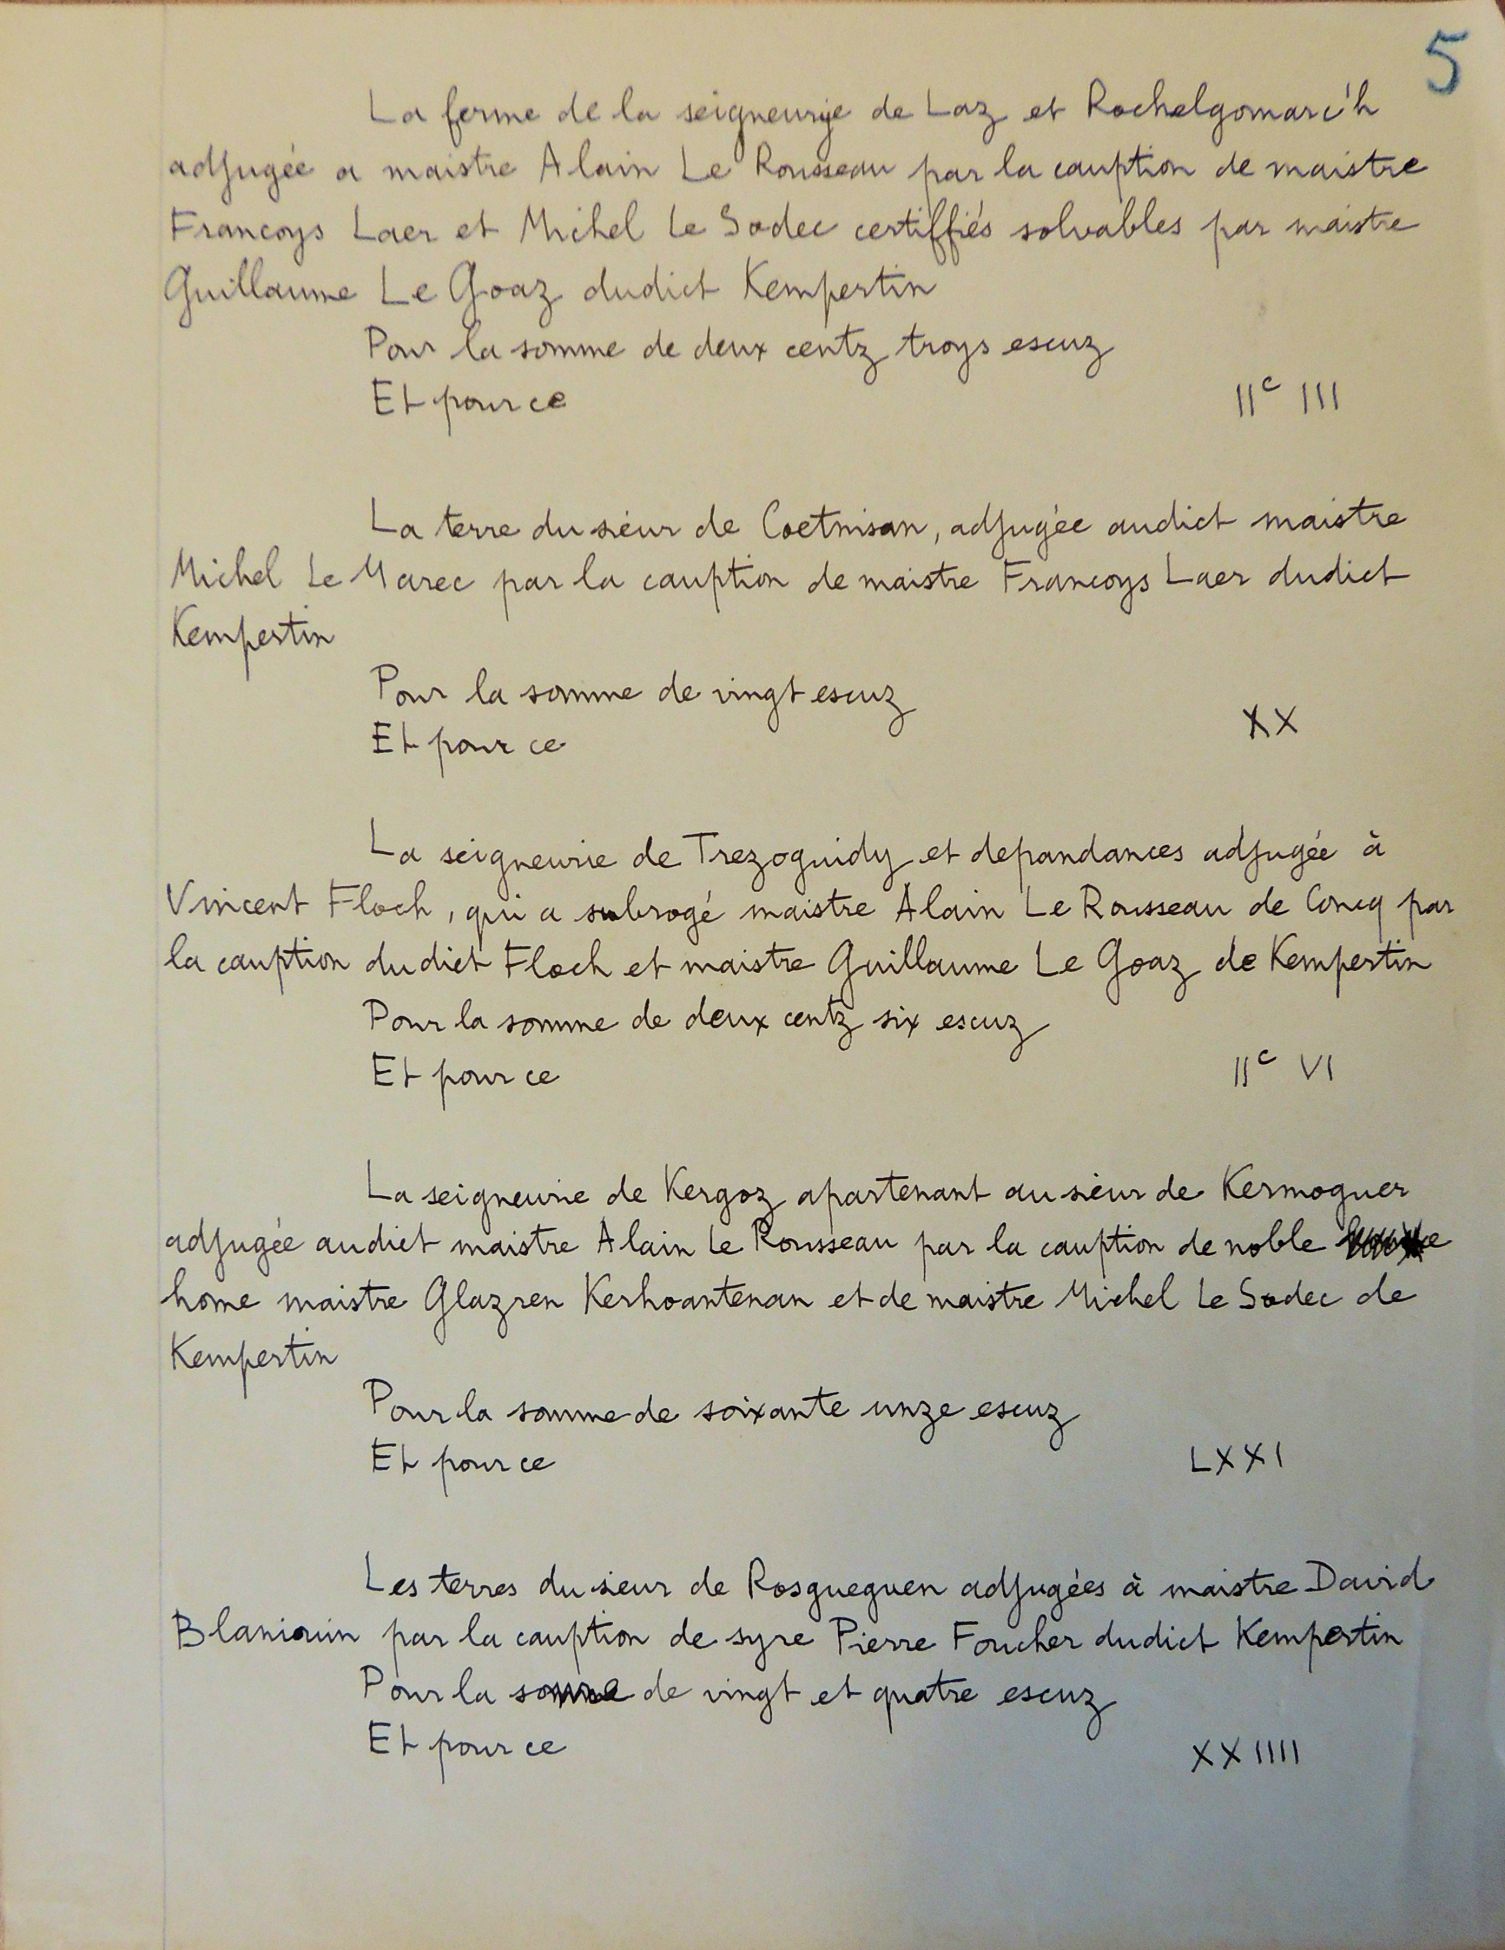 5
La ferme de la seigneurie de Laz et Rochelgomarc'h
adjugée a maistre Alain Le Rousseau par la cauption de maistre
Francoys Laer et Michel Le Sodec certiffiés solvables par maistre
Guillaume Le Goaz dudict Kempertin
Pour la somme de deux centz troys escuz
Et pour ce IIc III
La terre du sieur de Coetnisan, adjugée audict maistre
Michel Le Marec par la cauption de maistre Francoys Laer dudict
Kempertin
Pour la somme de vingt escuz
Et pour ce XX
La seigneurie de Trezoguidy et depandances adjugée à
Vincent Floch, qui a subrogé maistre Alain Le Rousseau de Concq par
la cauption dudict Floch et maistre Guillaume Le Goaz de Kempertin
Pour la somme de deux centz six escuz
Et pour ce IIc VI
La seigneurie de Kergoz apartenant au sieur de Kermoguer
adjugée audict maistre Alain Le Rousseau par la cauption de noble
home maistre Glazren Kerhoantenan et de maistre Michel Le Sodec de
Kempertin
Pour la somme de soixante unze escuz
Et pour ce LXXI
Les terres du sieur de Rosgueguen adjugées à maistre David
par la cauption de syre Pierre Foucher dudict Kempertin
Pour la somme de vingt et quatre escuz
Et pour ce XXIIII